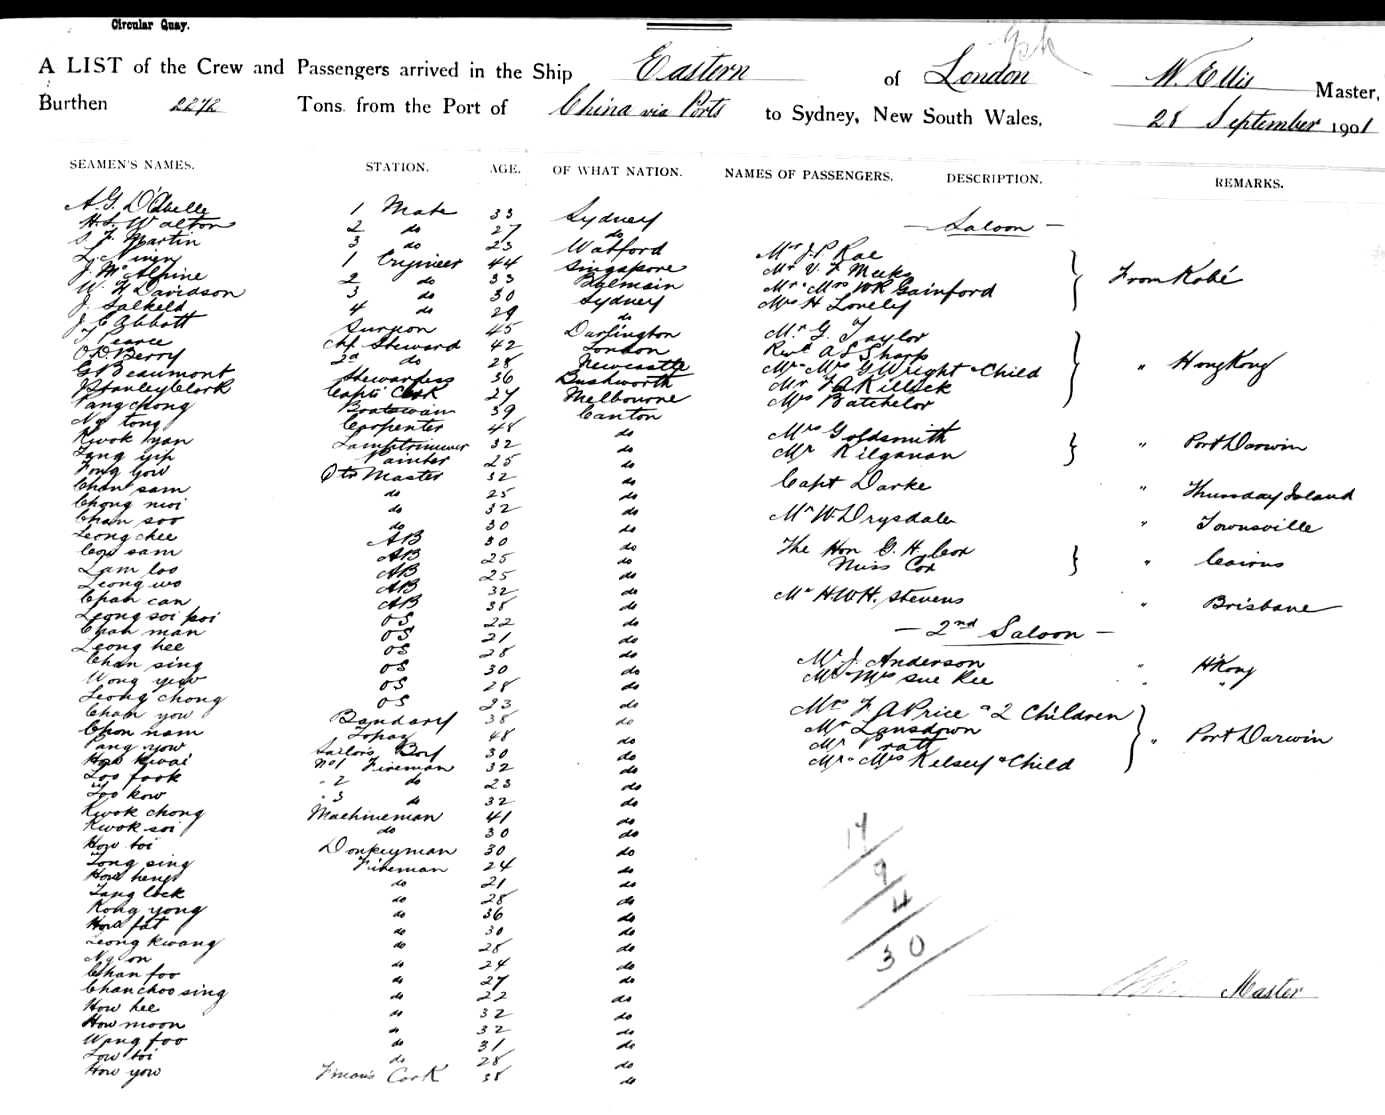 Circular Quay.
A LIST of the Crew and Passengers arrived in the Ship Eastern of London W. Ellis Master,
Burthen 2272 Tons from the Port of China via Ports to Sydney, New South Wales, 28 September 1901
SEAMEN'S NAMES. STATION. AGE. OF WHAT NATION. NAMES OF PASSENGERS. DESCRIPTION. REMARKS.
A.G. D'Obelle 1 Mate 33 Sydney
H.S. Walton 2 do 27 do
S. F. Martin 3 do 23 Watford
L. 1 Engineer 44 Singapore
J. McAlpine 2 do 33 Balmain
W. H Davidson 3 do 30 Sydney
J. Salkeld 4 do 29 do
J. C Abbott Surgeon 45 Darlington
Pearce Chf. Steward 42 London
O.D. Berry 2d do 28 Newcastle
G Beaumont Stewardess 36 Rushworth
J Stanley Clark Capts Cook 27 Melbourne
Pang chong Boatswain 39 Canton
Ng tong Carpenter 48 do
Kwok yan Lamptrimmer 32 do
Lang yip Painter 25 do
Fong yow Qtr Master 32 do
Chan sam do 25 do
Chong moi do 32 do
Chan soo do 30 do
Leong chee AB 30 do
Cow sam AB 25 do
Lam loo AB 25 do
Leong wo AB 32 do
Chan can AB 38 do
Leong soi poi OS 22 do
Chan man OS 21 do
Leong hee OS 28 do
Chan sing OS 30 do
Wong yew OS 28 do
Leong chong OS 23 do
Chan you Bandary 38 do
Chon nam Topaz 48 do
Pang yow Sailors Boy 30 do
How kwai No1 Fireman 32 do
Loo fook " 2 do 23 do
Loo kow " 3 do 32 do
Kwok chong Machineman 41 do
Kwok soi do 30 do
How toi Donkeyman 30 do
Tong sing Fireman 24 do
How heng do 21 do
Tang lock do 28 do
Kong yong do 36 do
How fat do 30 do
Leong kwang do 28 do
Ng on do 24 do
Chan foo do 27 do
Chan choo sing do 22 do
How hee do 32 do
How moon do 32 do
Wang foo do 31 do
Low toi do 28 do
How you Fman's Cook 38 do
— Saloon —
Mr J.P. Rae
Mr V. F Meeks
Mr " Mrs W R Gainford
Mrs H Lovely
From Kobé
Mr G. Taylor
Revd A S Sharp
Mr " Mrs G Wright & Child
Mr F A Killick
Mrs Batchelor
" Hong Kong
Mrs Goldsmith
Mr Kilganan
" Port Darwin
Capt Darke " Thursday Island
Mr W Drysdale " Townsville
The Hon G. H. Cox
Miss Cox
" Cairns
Mr H W H. Stevens " Brisbane
— 2nd Saloon —
Mr J. Anderson " H'Kong
Mr " Mrs Sue Kee " "
Mrs F. A Price & 2 Children
Mr Lansdown
Mr Pratt
Mr " Mrs Kelsey & Child
" Port Darwin
17
9
4
30
Master